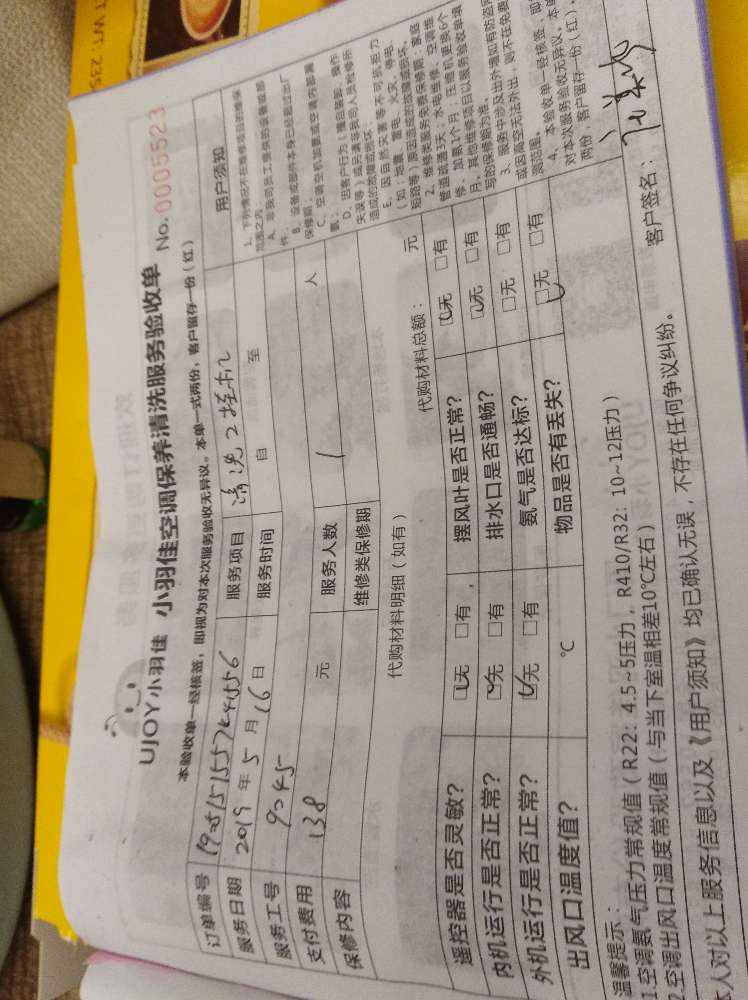 NT WT. 23
UJOY小羽佳 小羽佳空调保养清洗服务验收单
No. 0005523
本验收单一经核签，即视为对本次服务验收无异议。本单一式两份，客户留存一份（红）
订单编号
服务项目 清洗2挂机
服务日期 2019年5月16日
服务时间 自 至
服务工号 9045
支付费用 138 元
服务人数 1 人
保修内容
维修类保修期
代购材料明细（如有）
代购材料总额： 元
遥控器是否灵敏？ □无 □有
摆风叶是否正常？ □无 □有
内机运行是否正常？ □无 □有
排水口是否通畅？ □无 □有
外机运行是否正常？ □无 □有
氨气是否达标？ □无 □有
出风口温度值？ ℃
物品是否有丢失？ □无 □有
用户须知
1、下列情况不在维修项目的维保
范围之内：
A、非我司员工提供的设备或部
件；
B、设备或部件本身已经超过出厂
保修期；
C、空调主机加氨或空调内部漏
氨；
D、因客户行为（擅自装卸、操作
失误等）或另请非我司人员检修所
造成的故障或损坏；
E、因自然灾害等不可抗拒力
（如：地震、雷电、火灾、停电、
短路等）原因造成的故障或损坏。
2、维修类服务免费保修期：家庭
管道疏通3天；水电维修、空调维
修、加氨1个月；压缩机更换6个
月。其他维修项目以服务验收单填
写的保修期为准。
3、服务中涉及出外墙如有防盗网
或因高空无法外出，则不在免费
测范围。
4、本验收单一经核签，即
对本次服务验收无异议。本单
两份，客户留存一份（红）。
温馨提示：
1空调氨气压力常规值（R22：4.5~5压力，R410/R32：10~12压力）
2空调出风口温度常规值（与当下室温相差10℃左右）
本人对以上服务信息以及《用户须知》均已确认无误，不存在任何争议纠纷。
客户签名：